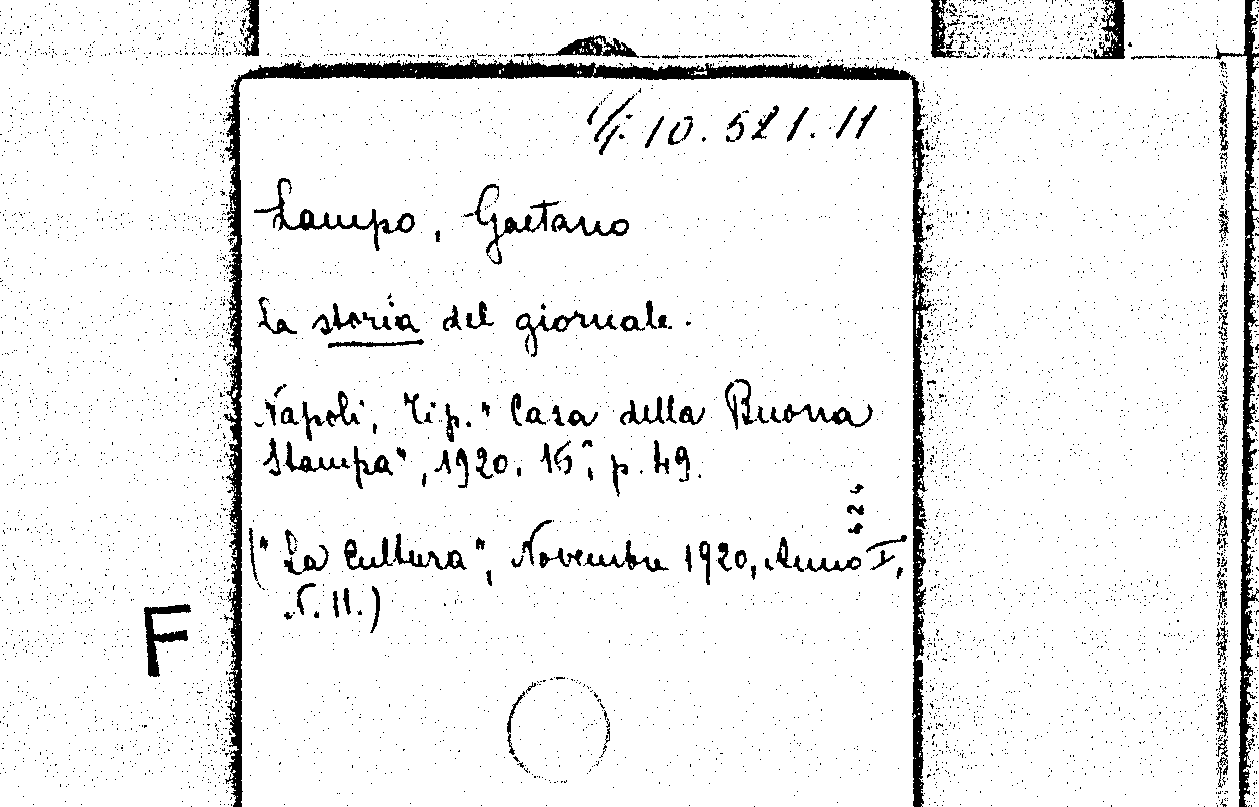 10.521.11
Lampo, Gaetano
La storia del giornale.
Napoli, Tip. "Casa della Buona
Stampa", 1920. 16°, p. 49.
424
("La Cultura", Novembre 1920, Anno I,
N. 11.)
F